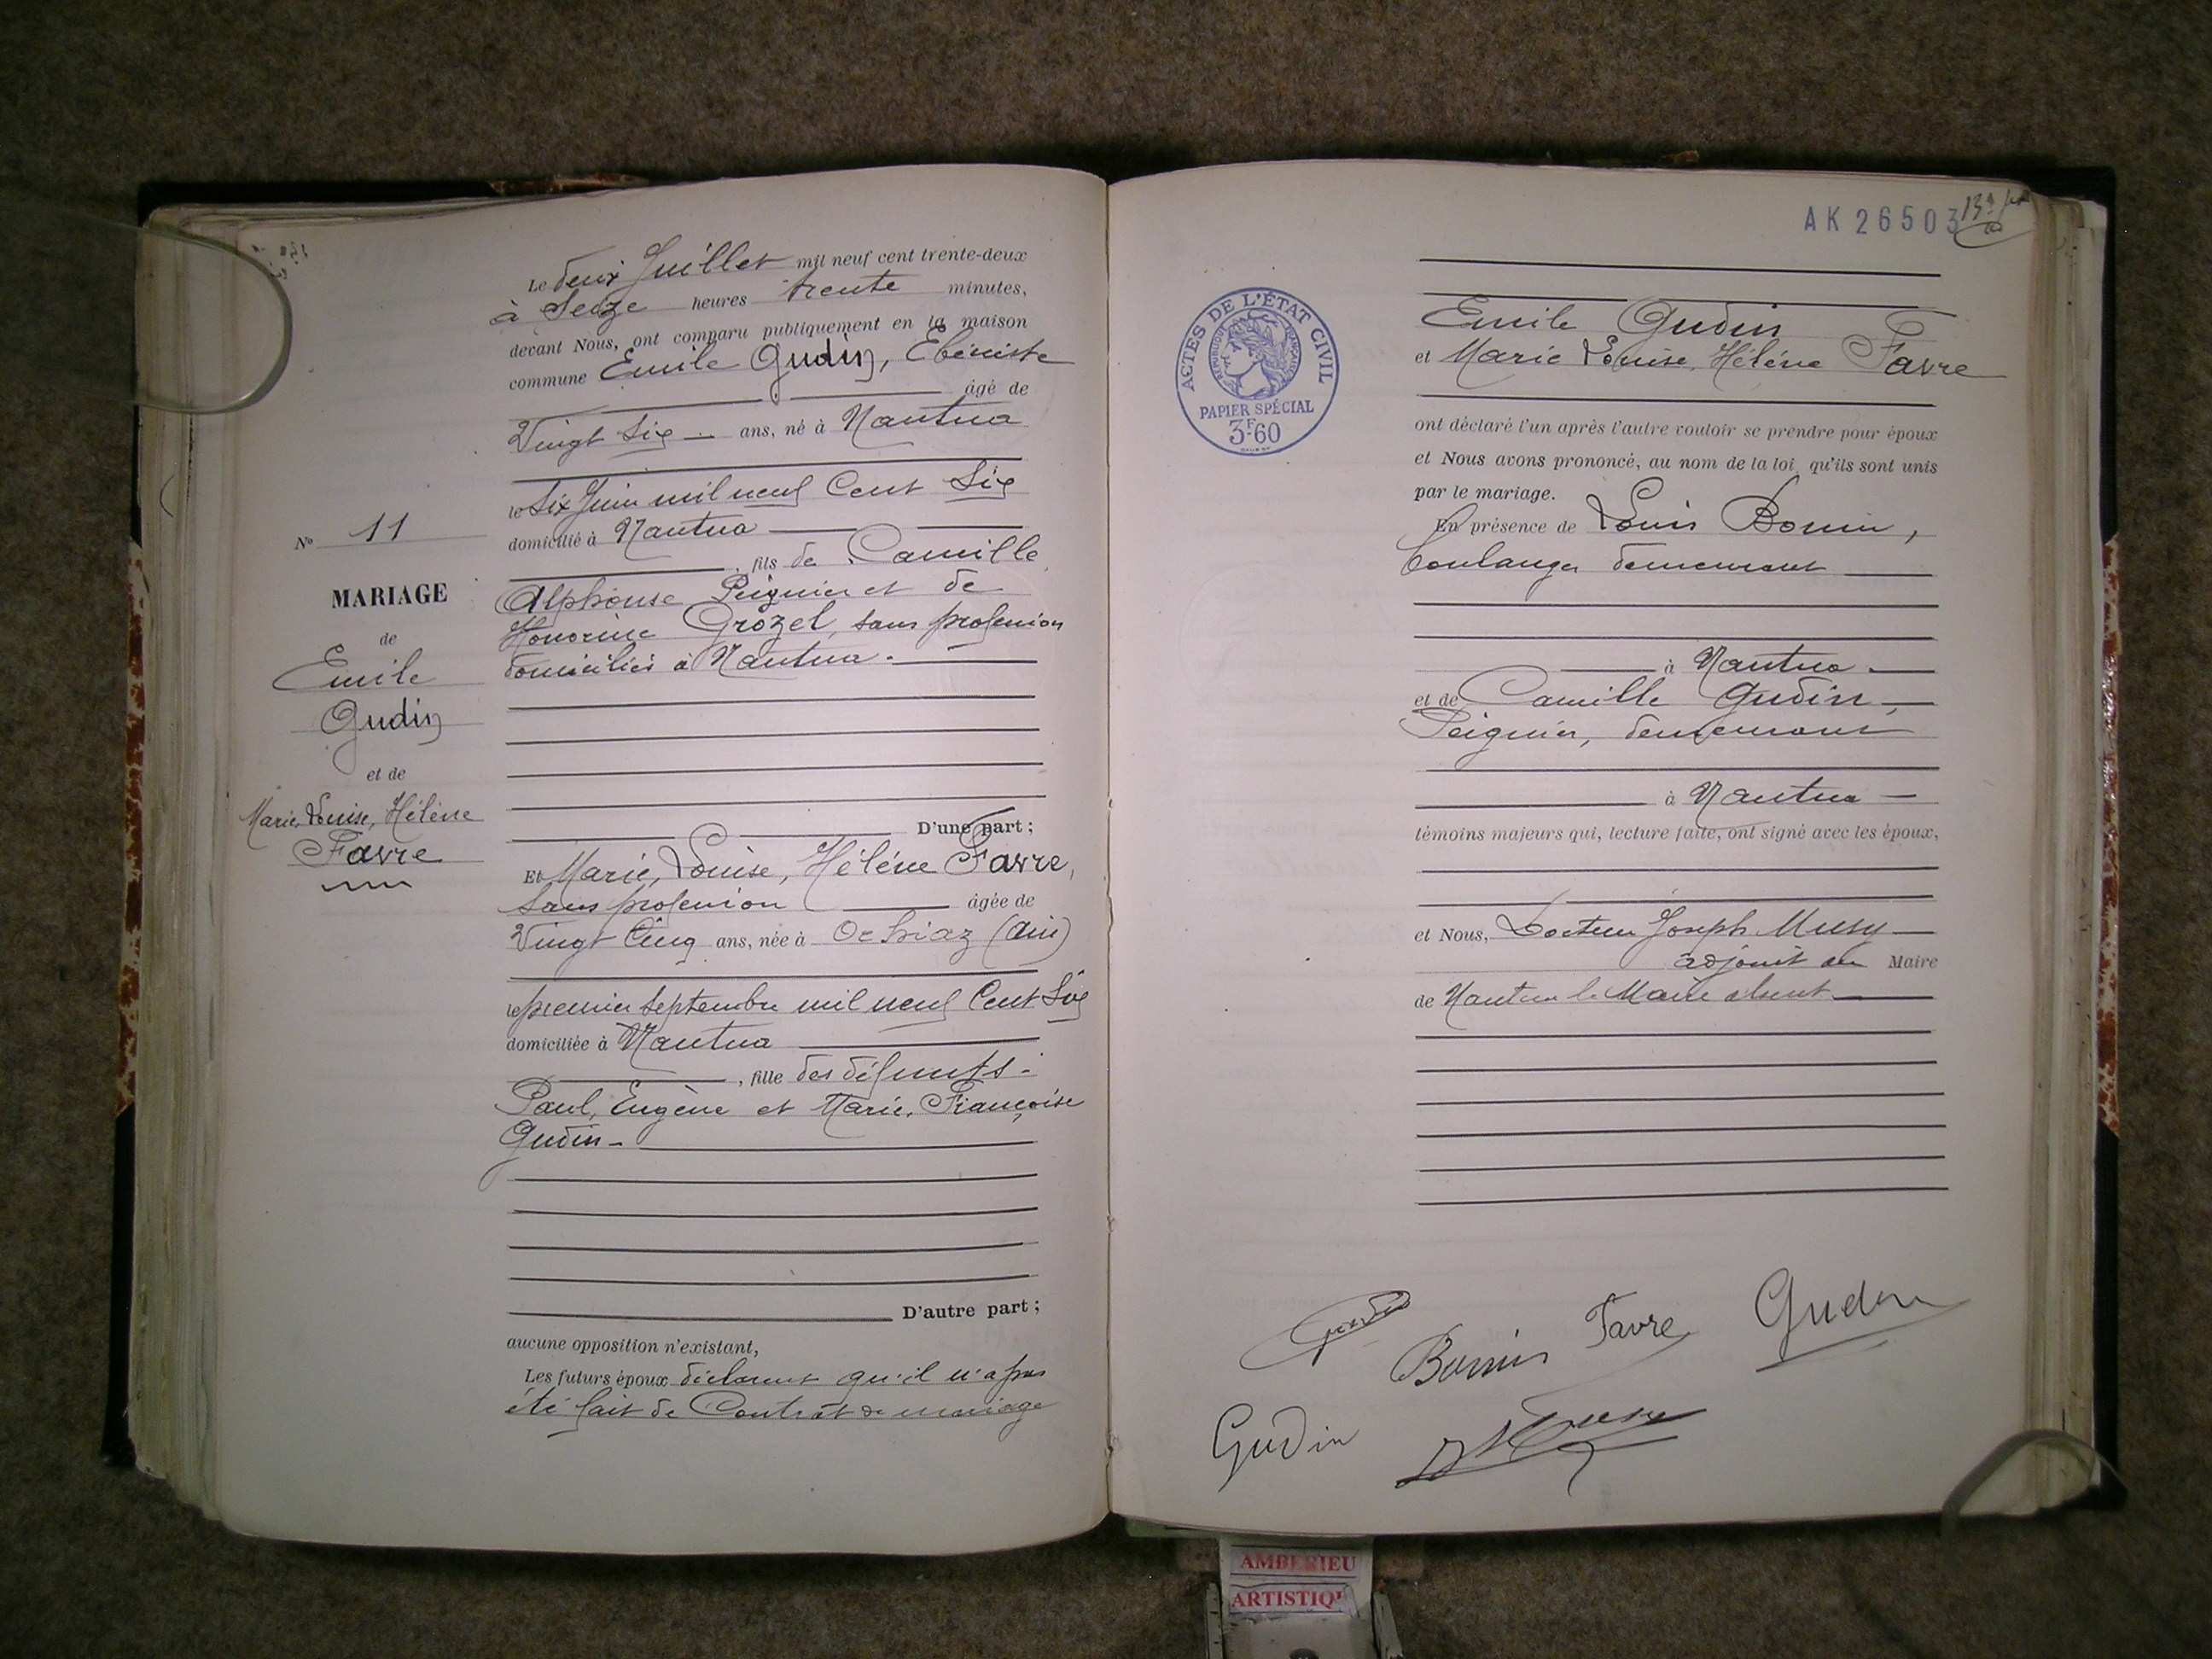 Le deux Juillet mil neuf cent trente-deux
à Seize heures trente minutes,
devant Nous, ont comparu publiquement en la maison
commune Emile Gudin, Ebéniste
âgé de
Vingt Six ans, né à Nantua
le Six Juin mil neuf Cent Six
domicilié à Nantua
, fils de Camille
Alphonse Peignier et de
Honorine Grozel, sans profession
domiciliés à Nantua.
D'une part;
Et Marie, Louise, Hélène Favre,
Sans profession âgée de
Vingt Cinq ans, née à Ochiaz (Ain)
le premier Septembre mil neuf Cent Six
domiciliée à Nantua
, fille des défunts
Paul, Eugène et Marie, Françoise
Gudin
D'autre part;
aucune opposition n'existant,
Les futurs époux déclarent qu'il n'a pas
été fait de Contrat de mariage
No 11
MARIAGE
de
Emile
Gudin
et de
Marie, Louise, Hélène
Favre
AK 26503
ACTES DE L'ÉTAT CIVIL
RÉPUBLIQUE FRANÇAISE
PAPIER SPÉCIAL
3F.60
Emile Gudin
et Marie Louise, Hélène Favre
ont déclaré l'un après l'autre vouloir se prendre pour époux
et Nous avons prononcé, au nom de la loi qu'ils sont unis
par le mariage.
En présence de Louis Bonin,
boulanger demeurant
à Nantua.
et de Camille Gudin,
Peignier, demeurant
à Nantua
témoins majeurs qui, lecture faite, ont signé avec les époux,
et Nous, Docteur Joseph Musy
adjoint au Maire
de Nantua le Maire absent
Bonin Favre Gudin
Gudin
AMBERIEU
ARTISTIQ